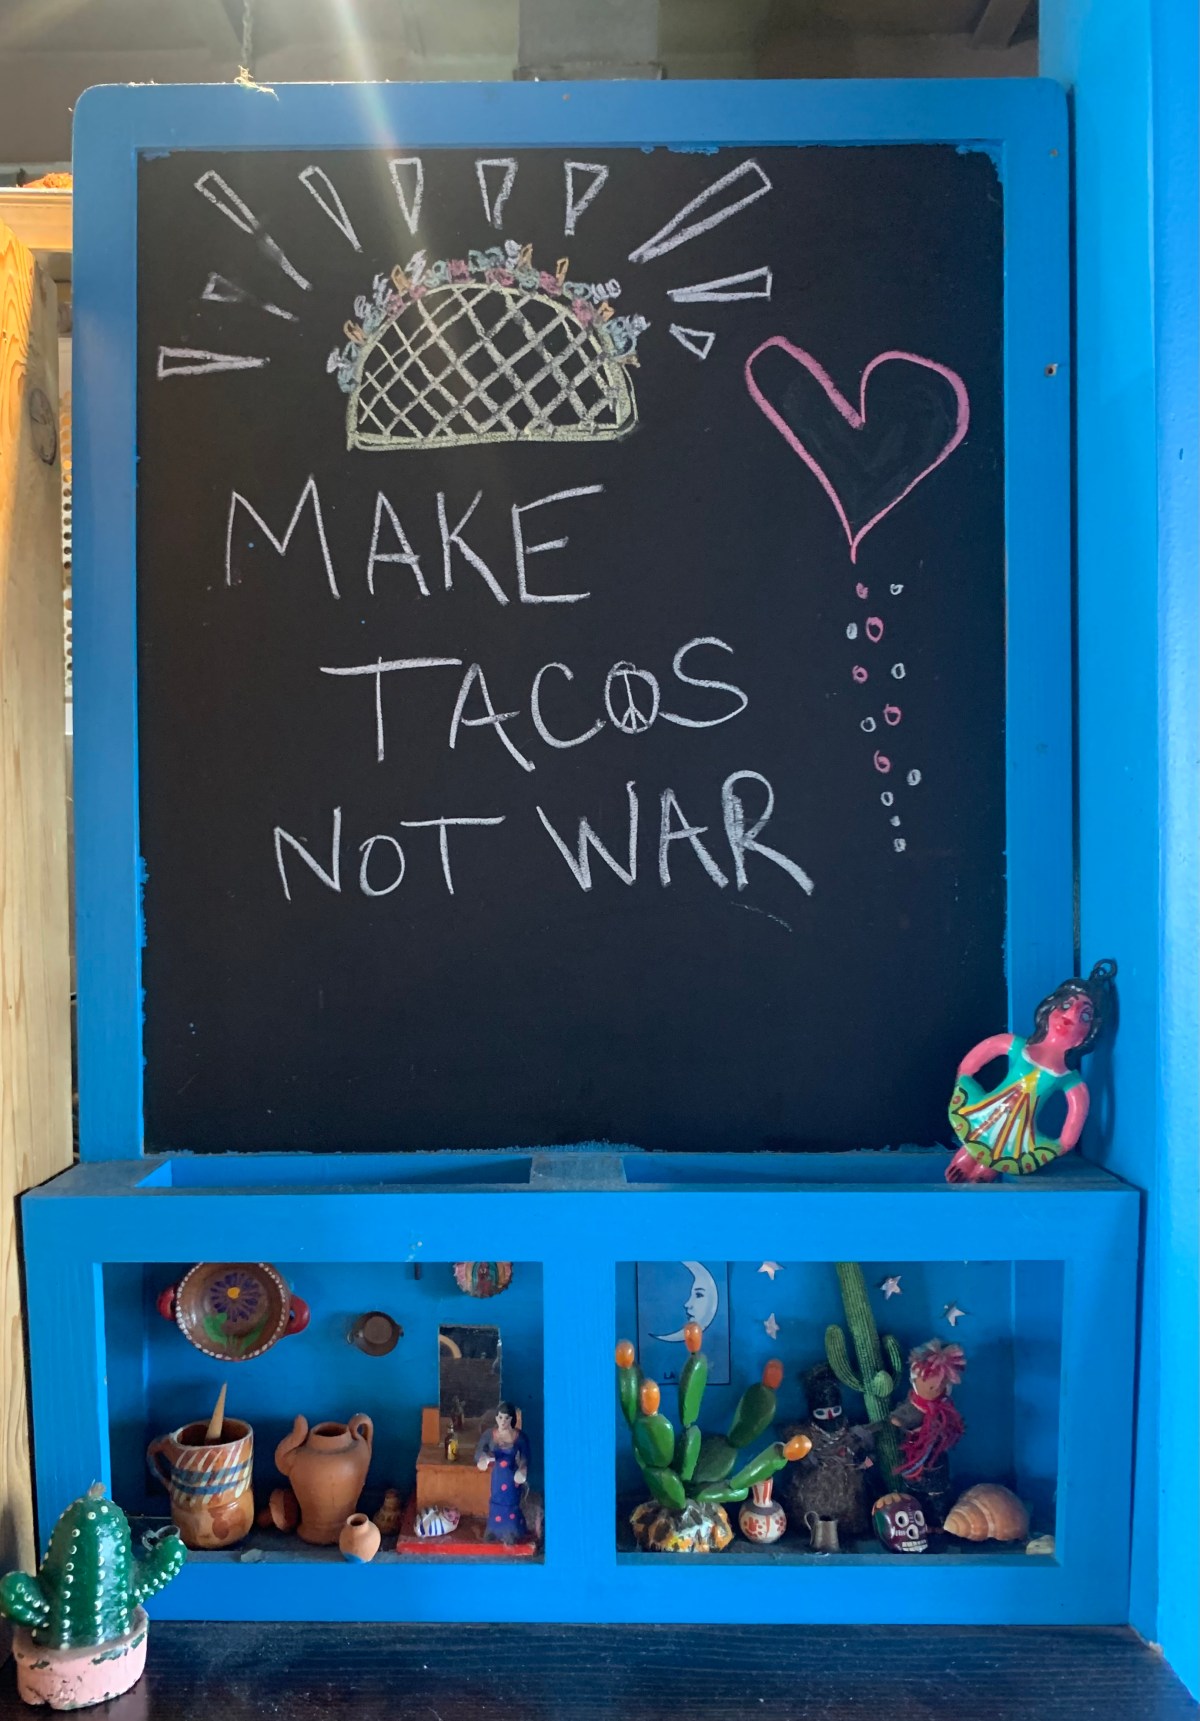 MAKE
TACOS
NOT WAR
LA